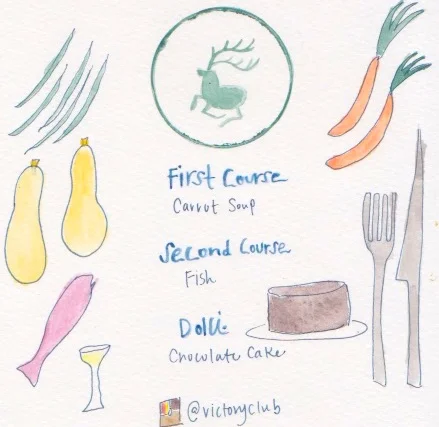 First Course
Carrot Soup
Second Course
Fish
Dolci
Chocolate Cake
@victoryclub